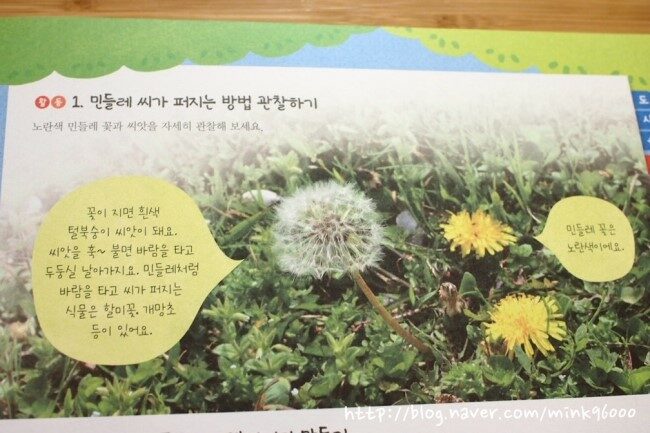 활동 1. 민들레 씨가 퍼지는 방법 관찰하기
노란색 민들레 꽃과 씨앗을 자세히 관찰해 보세요.
꽃이 지면 흰색
털북숭이 씨앗이 돼요.
씨앗을 훅~ 불면 바람을 타고
두둥실 날아가지요. 민들레처럼
바람을 타고 씨가 퍼지는
식물은 할미꽃, 개망초
등이 있어요.
민들레 꽃은
노란색이에요.
도
http://blog.naver.com/mink96000